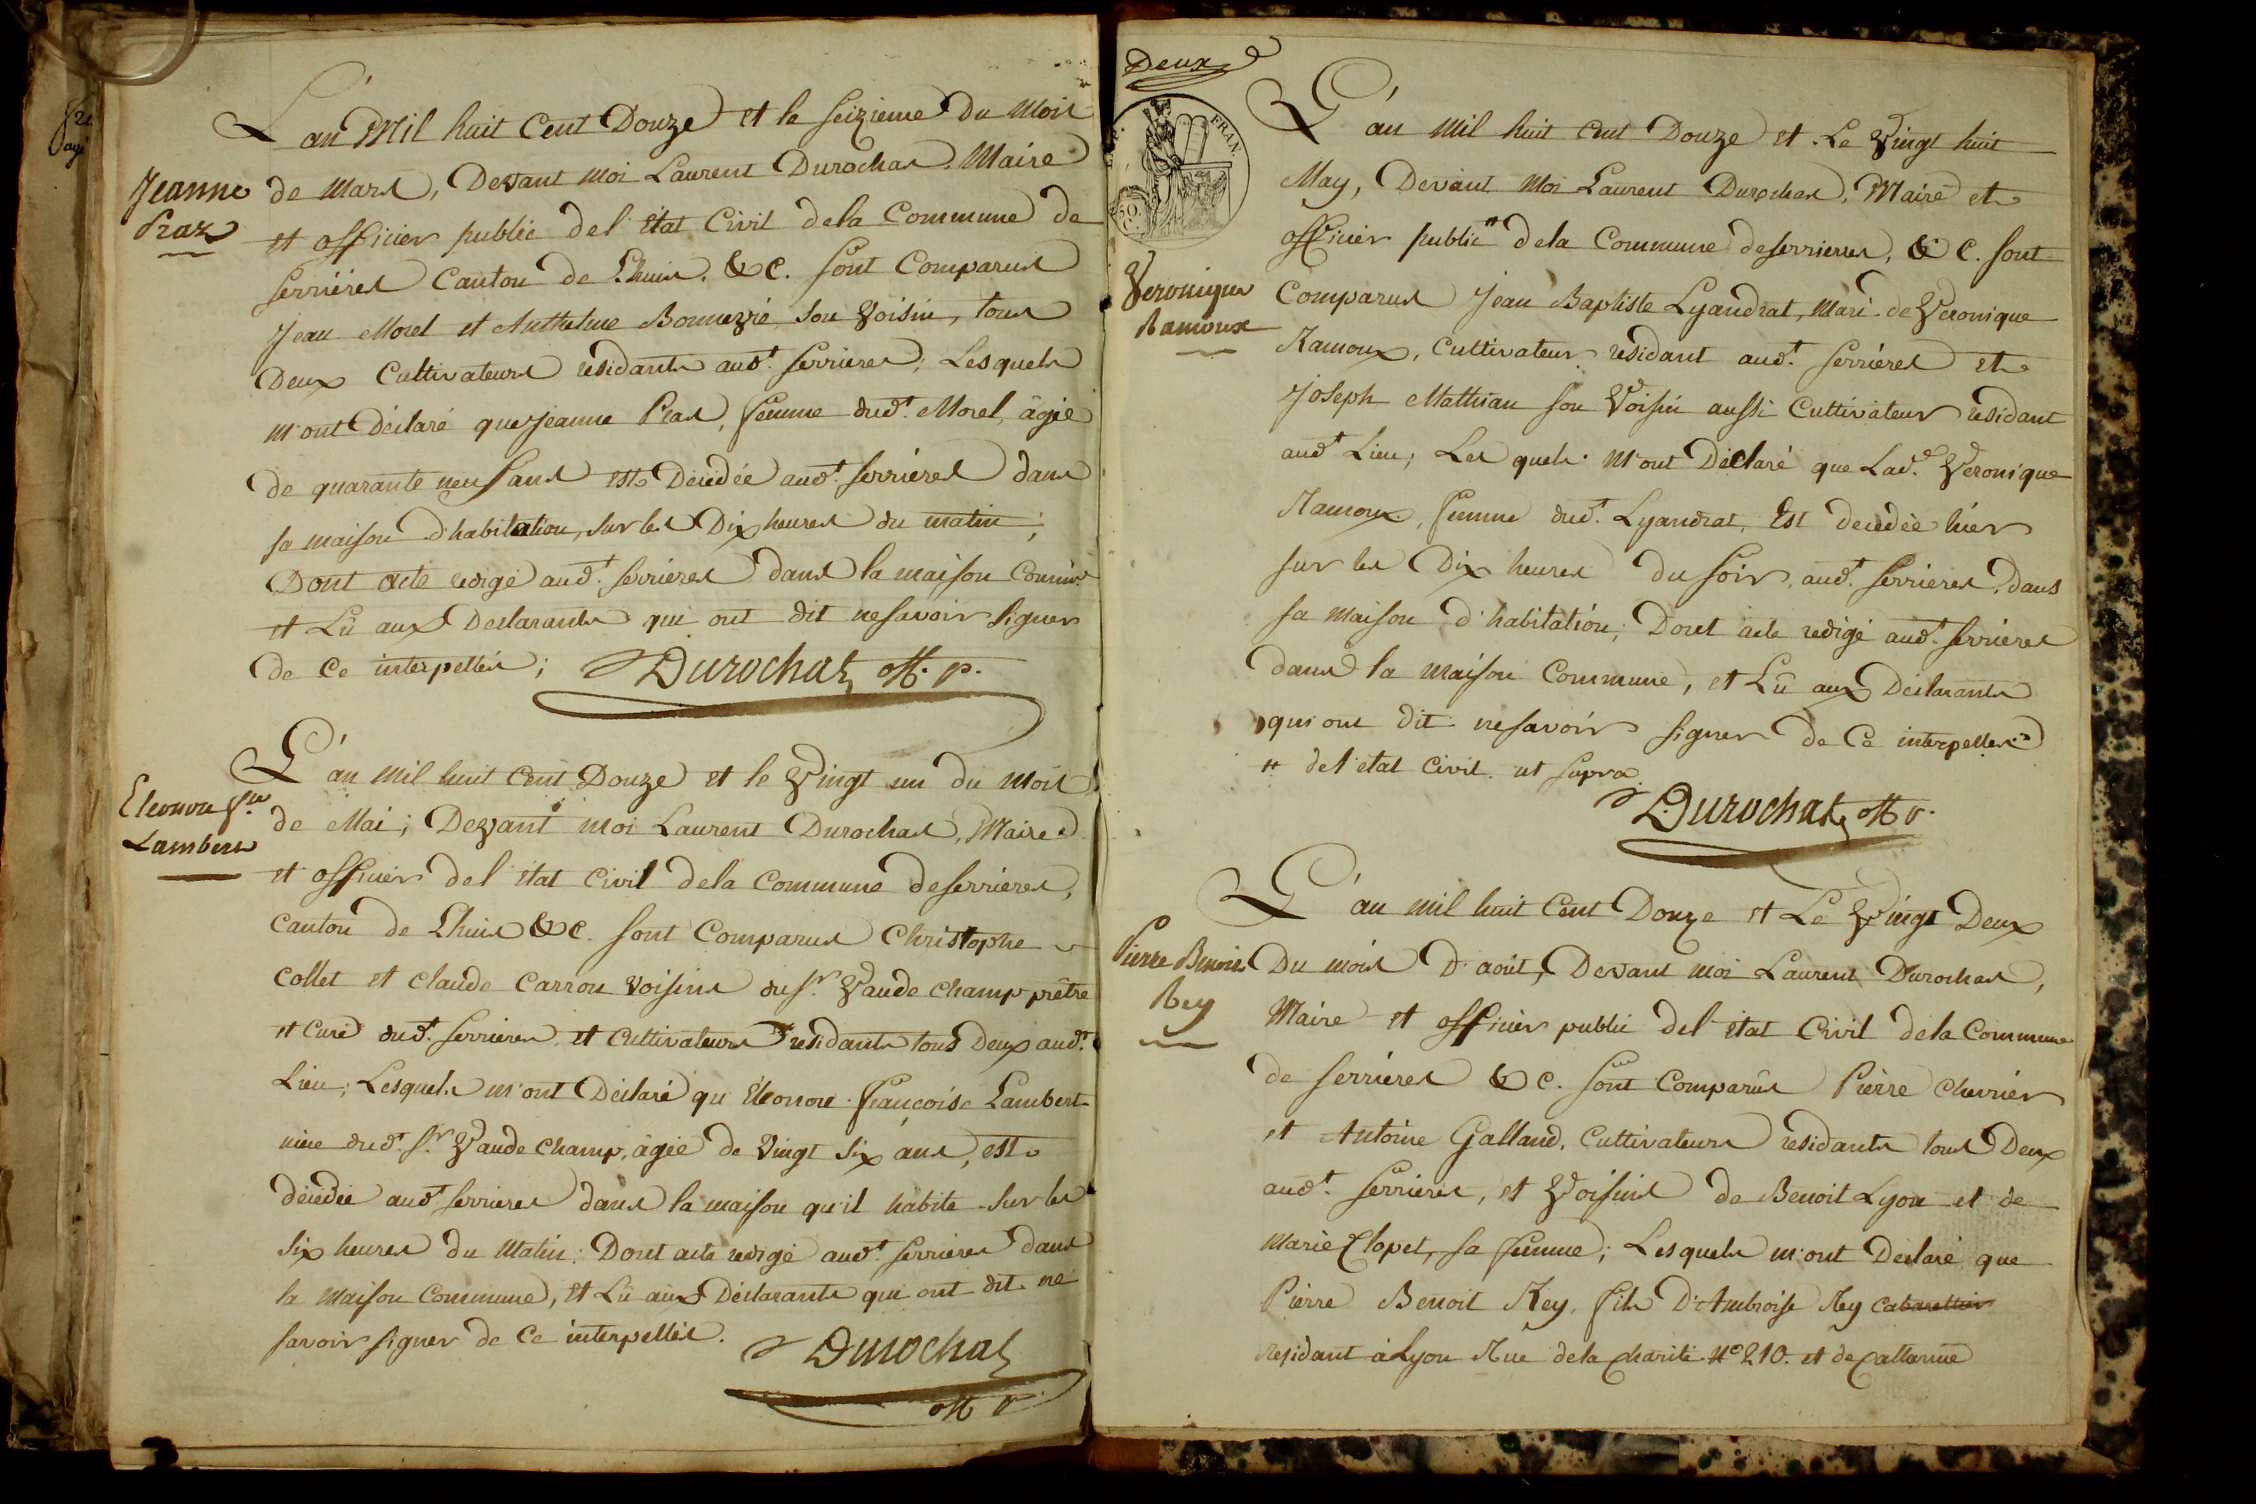 L'an Mil huit Cent Douze et le seizieme du Mois
Jeanne
Praz
de Mars, Devant moi Laurent Durochat, Maire
et officier public de l'état Civil de la Commune de
serriéres Canton de Lhuis. &c. sont Comparus
Jean Morel et Anthelme son Voisin, tous
Deux Cultivateurs résidants aud.t serrieres, Lesquels
m'ont Déclaré que Jeanne Pras, femme dud.t Morel, âgée
de quarante neuf ans est Décédée aud.t serriéres dans
sa maison d'habitation, sur les Dix heures du matin;
Dont acte redigé aud.t serrieres dans la maison
et Lû aux Declarants qui ont dit ne savoir signer
de Ce interpellés; Durochat off. p.
L'an mil huit Cent Douze et le Vingt un du mois
Eleonore f.se
Lambert
de Mai; Devant moi Laurent Durochat, Maire
et officier de l'état civil de la commune de serrieres,
canton de Lhuis &c. sont Comparus Christophe
collet et claude carron voisins du s.r Vaude champ prêtre
et Curé dud.t serrieres et cultivateurs residants tous Deux aud.t
Lieu; Lesquels m'ont Déclaré qu'Eleonore françoise Lambert
niece dud.t s.r Vaude champ, âgée de vingt six ans, est
décédée aud.t serrieres dans la maison qu'il habite sur les
six heures du Matin: Dont acte redigé aud.t serrieres dans
la maison commune, et Lû aux Déclarants qui ont dit ne
savoir signer de Ce interpellés.
Durochat
off p.
Deux
FRAN.
L'an mil huit cent Douze et Le Vingt huit
May, Devant moi Laurent Durochat, Maire et
officier public # de la Commune de serrieres, & c. sont
Veronique
Ramoux
Comparus Jean Baptiste Lyandrat, mari de Veronique
Ramoux, cultivateur résidant aud.t serriéres et
Joseph Mathian son Voisin aussi Cultivateur résidant
aud.t Lieu; Les quels m'ont Déclaré que Lad.e Veronique
Ramoux, femme dud.t Lyandrat, Est décédée hier
sur les Dix heures du soir, aud.t serrieres, dans
sa maison d'habitation; Dont acte redigé aud.t serriéres
dans la maison Commune, et Lû aux Déclarants
qui ont dit ne savoir signer de Ce interpellés
# de l'état civil. ut supra.
Durochat off p.
L'an mil huit Cent Douze et Le Vingt Deux
Pierre Benoit
Rey
Du mois D'août, Devant moi Laurent Durochat,
Maire et officier public de l'état Civil de la Commune
de serriéres & c. sont comparûs Pierre chevrier
et Antoine Galland, cultivateurs residants tous Deux
aud.t serrieres, et Voisins de Benoit Lyon et de
Marie Clopet, sa femme; Lesquels m'ont Déclaré que
Pierre Benoit Rey, fils D'Ambroise Rey cabarettier
residant à Lyon Rue de la Charité N° 210. et de